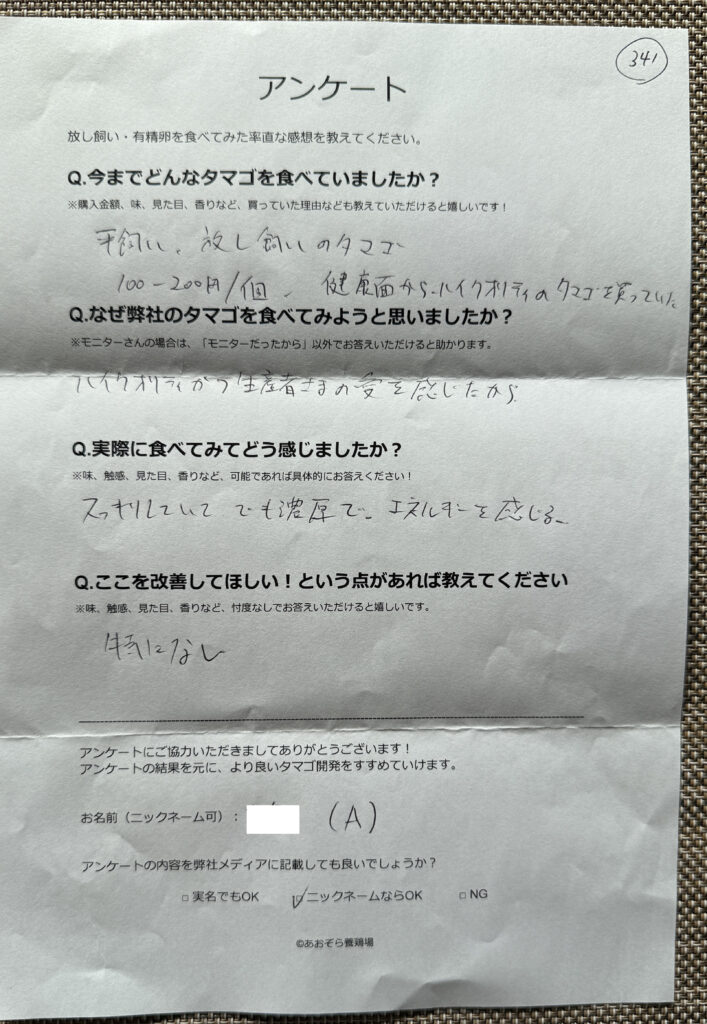 341
アンケート
放し飼い・有精卵を食べてみた率直な感想を教えてください。
Q.今までどんなタマゴを食べていましたか？
※購入金額、味、見た目、香りなど、買っていた理由なども教えていただけると嬉しいです！
平飼い、放し飼いのタマゴ
100-200円/個、健康面からハイクオリティのタマゴを買っていた
Q.なぜ弊社のタマゴを食べてみようと思いましたか？
※モニターさんの場合は、「モニターだったから」以外でお答えいただけると助かります。
ハイクオリティかつ生産者さまの愛を感じたから
Q.実際に食べてみてどう感じましたか？
※味、触感、見た目、香りなど、可能であれば具体的にお答えください！
スッキリしていて でも濃厚で、エネルギーを感じる。
Q.ここを改善してほしい！という点があれば教えてください
※味、触感、見た目、香りなど、忖度なしでお答えいただけると嬉しいです。
特になし
アンケートにご協力いただきましてありがとうございます！
アンケートの結果を元に、より良いタマゴ開発をすすめていけます。
お名前（ニックネーム可）： (A)
アンケートの内容を弊社メディアに記載しても良いでしょうか？
□実名でもOK □ニックネームならOK □NG
©あおぞら養鶏場